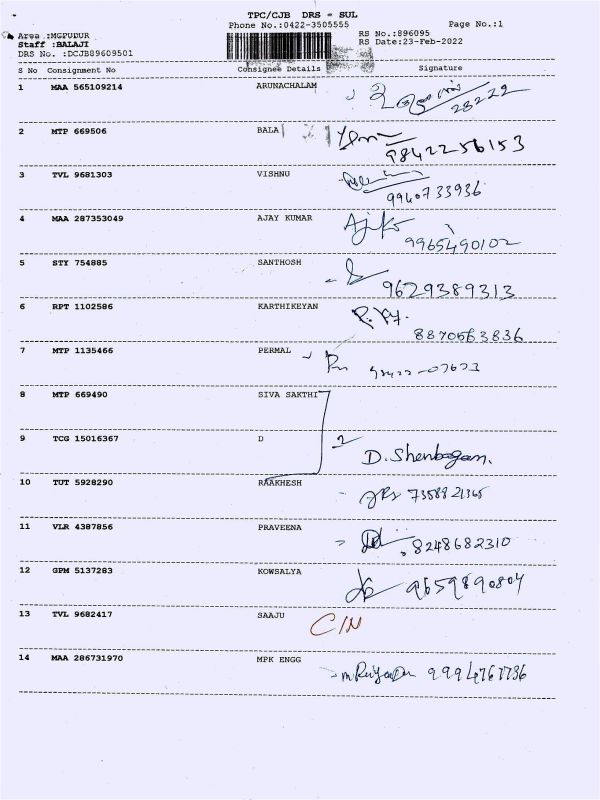 TPC/CJB DRS - SUL
Phone No.:0422-3505555 Page No.:1
Area :MGPUDUR RS No.:896095
Staff :BALAJI RS Date:23-Feb-2022
DRS No. :DCJB89609501
S No Consignment No Consignee Details Signature
1 MAA 565109214 ARUNACHALAM
28222
2 MTP 669506 BALA
9842256153
3 TVL 9681303 VISHNU
9940733936
4 MAA 287353049 AJAY KUMAR
9965490102
5 STY 754885 SANTHOSH
9629389313
6 RPT 1102586 KARTHIKEYAN
8870563836
7 MTP 1135466 PERMAL
8 MTP 669490 SIVA SAKTHI
9 TCG 15016367 D 2
D. Shenbagam.
10 TUT 5928290 RAAKHESH
7358821365
11 VLR 4387856 PRAVEENA
8248682310
12 GPM 5137283 KOWSALYA
9659890804
13 TVL 9682417 SAAJU
C/N
14 MAA 286731970 MPK ENGG
9994767736